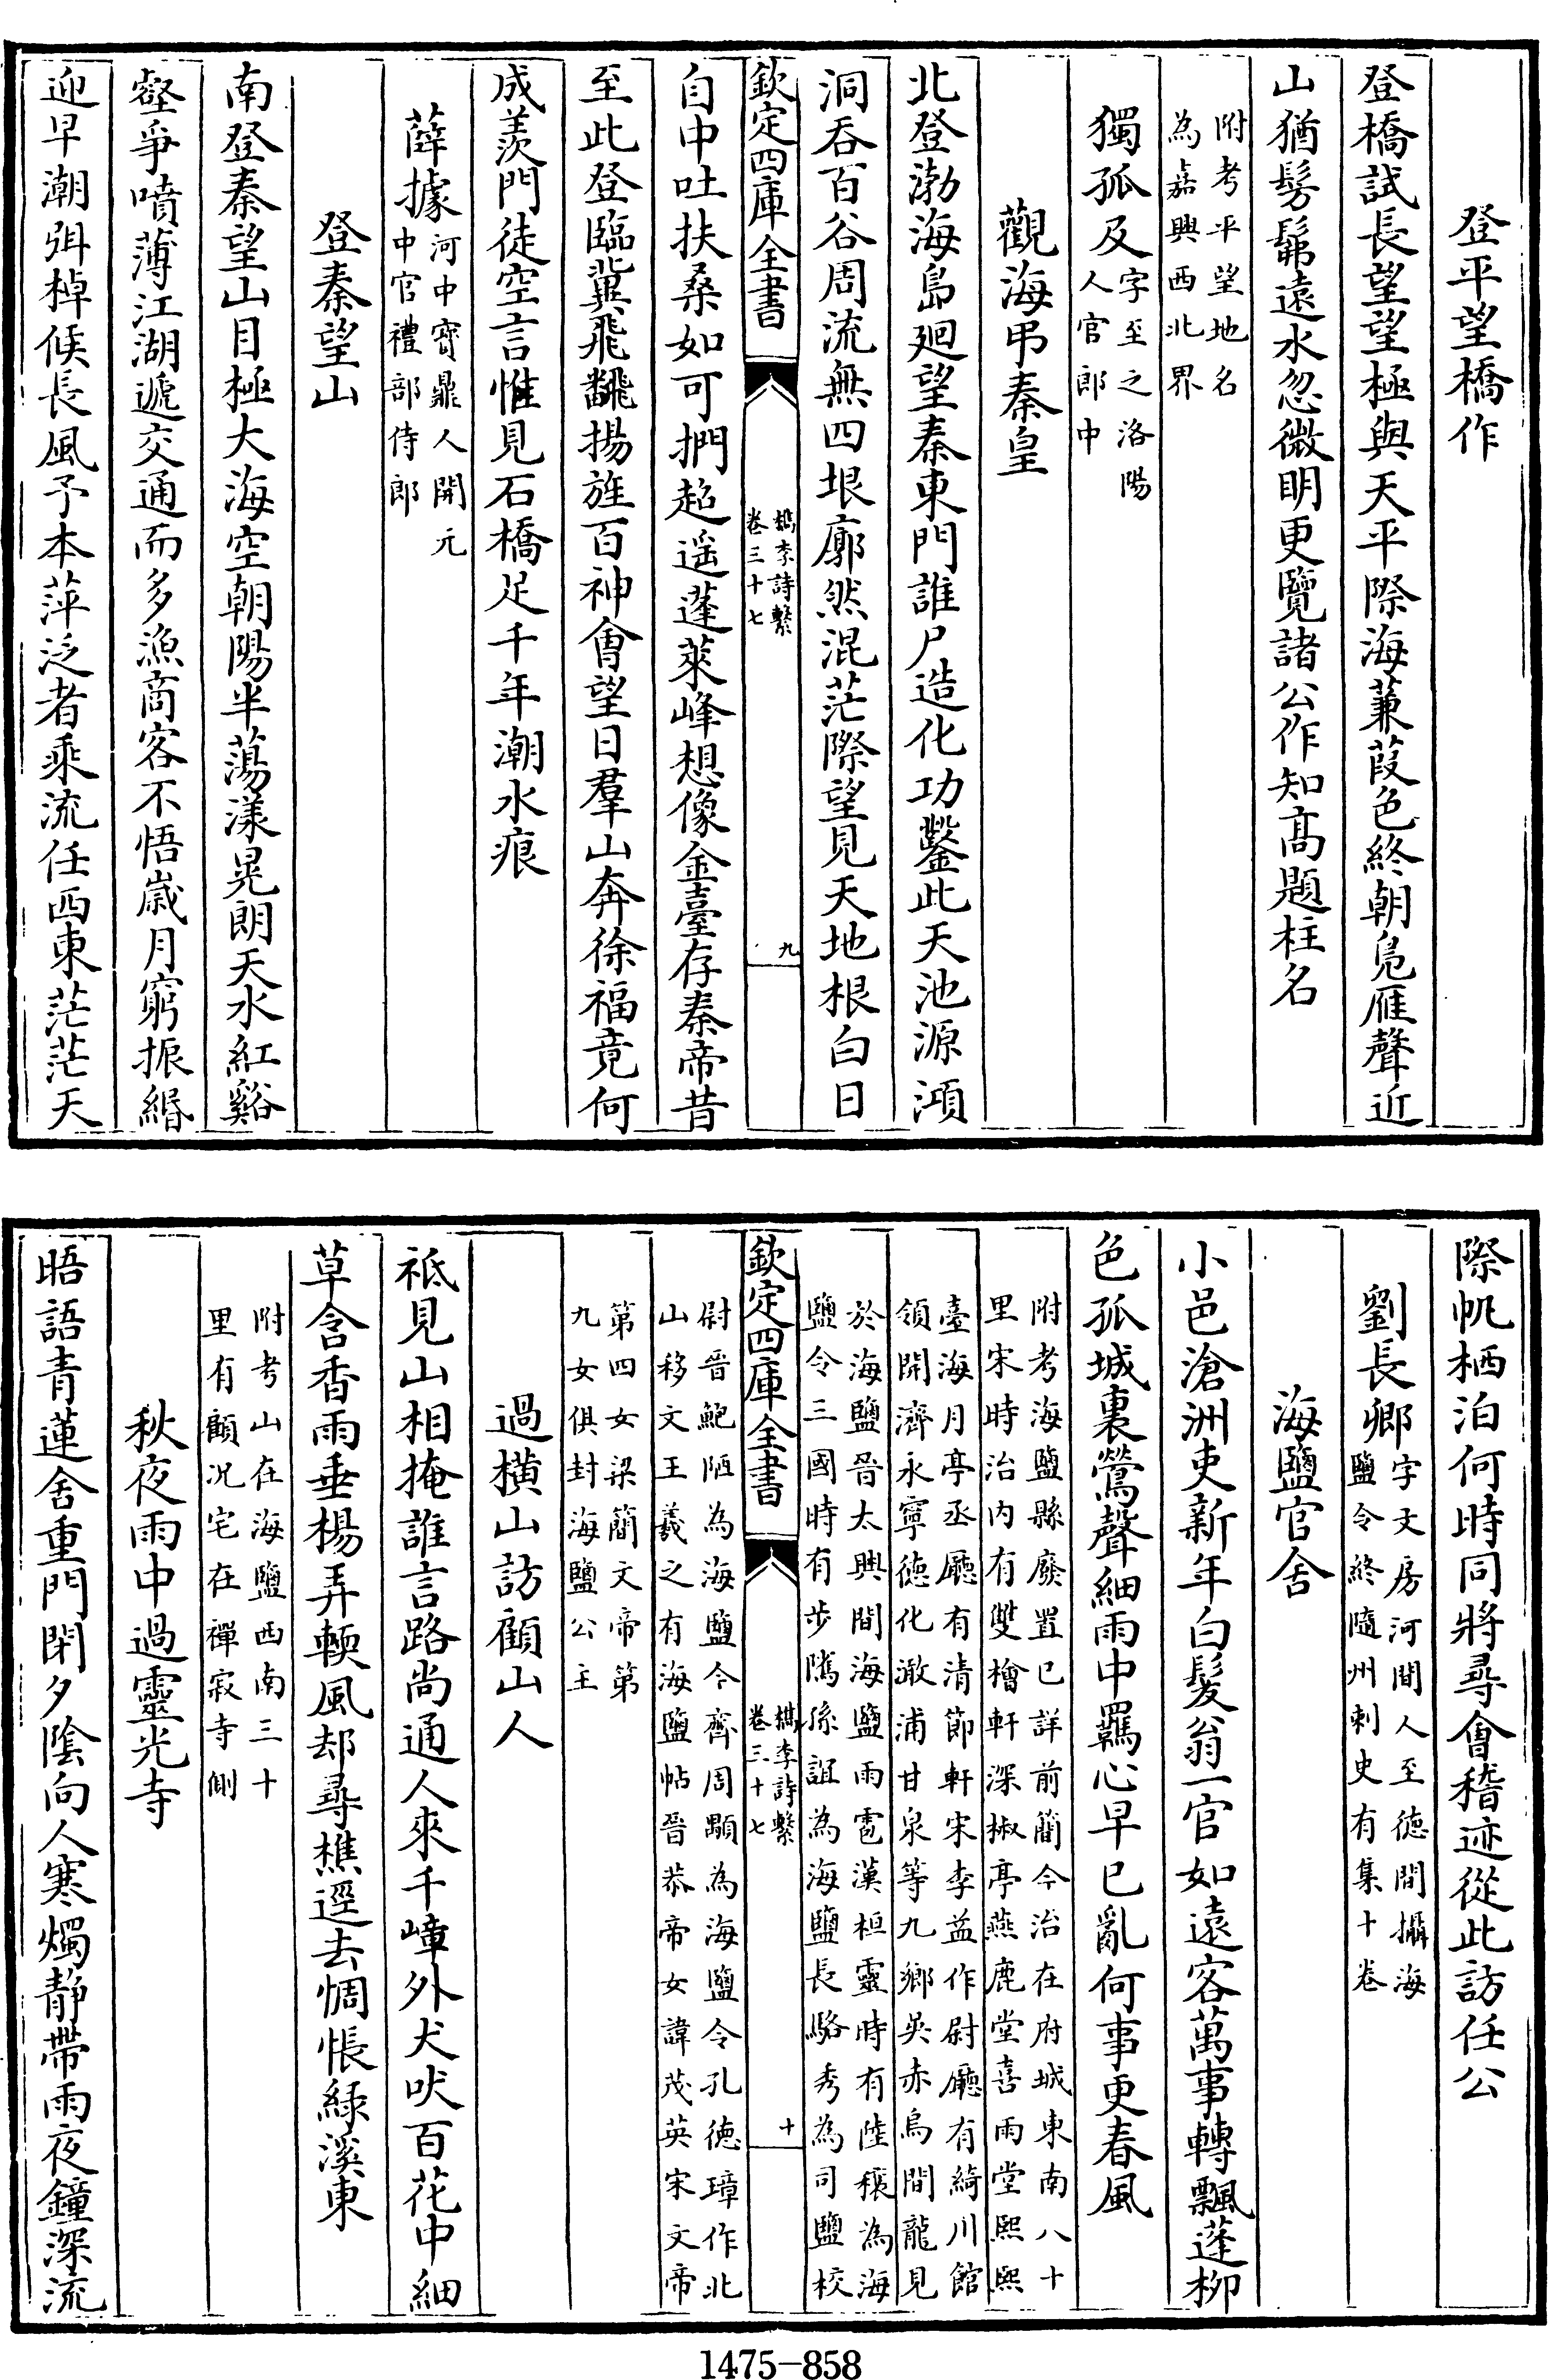 登平望橋作
登橋試長望望極與天平際海蒹葭色終朝鳬雁聲近
山猶髣髴遠水忽微明更覽諸公作知高題柱名
附考平望地名
為嘉興西北界
獨孤及字至之洛陽
人官郎中
觀海弔秦皇
北登渤海島廻望秦東門誰尸造化功鑿此天池源澒
洞吞百谷周流無四垠廓然混茫際望見天地根白日
欽定四庫全書
檇李詩繫
卷三十七
九
自中吐扶桑如可捫超遥蓬萊峰想像金臺存秦帝昔
至此登臨冀飛飜揚旌百神會望日羣山奔徐福竟何
成羨門徒空言惟見石橋足千年潮水痕
薛據河中寳鼎人開元
中官禮部侍郎
登秦望山
南登秦望山目極大海空朝陽半蕩漾晃朗天水紅谿
壑爭噴薄江湖遞交通而多漁商客不悟歲月窮振緡
迎早潮弭棹候長風予本萍泛者乘流任西東茫茫天
際帆栖泊何時同將尋會稽迹從此訪任公
劉長卿字文房河間人至德間攝海
鹽令終隨州刺史有集十卷
海鹽官舍
小邑滄洲吏新年白髪翁一官如遠客萬事轉飄蓬柳
色孤城裏鶯聲細雨中羈心早已亂何事更春風
附考海鹽縣廢置已詳前簡今治在府城東南八十
里宋時治内有雙檜軒深椒亭燕鹿堂喜雨堂熙熙
臺海月亭丞廳有清節軒宋李益作尉廳有綺川館
領開濟永寧德化澉浦甘泉等九鄉吳赤烏間龍見
於海鹽晉太興間海鹽雨雹漢桓靈時有陸穰為海
鹽令三國時有步隲孫誼為海鹽長駱秀為司鹽校
欽定四庫全書
檇李詩繫
卷三十七
十
尉晉鮑陋為海鹽令齊周顒為海鹽令孔德璋作北
山移文王羲之有海鹽帖晉恭帝女諱茂英宋文帝
第四女梁簡文帝第
九女俱封海鹽公主
過横山訪顧山人
祗見山相掩誰言路尚通人來千嶂外犬吠百花中細
草含香雨垂楊弄輭風却尋樵逕去惆悵緑溪東
附考山在海鹽西南三十
里有顧况宅在禪寂寺側
秋夜雨中過靈光寺
晤語青蓮舍重門閉夕陰向人寒燭靜帶雨夜鐘深流
1475-858